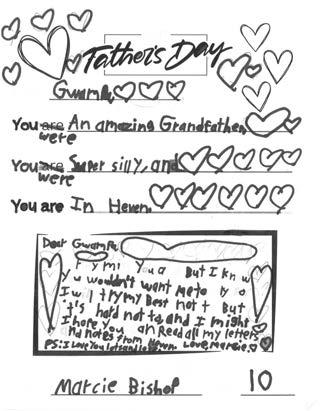 Father's Day
Gwampa
You are were An amazing Grandfather,
You are were Super silly, and
You are In Heven.
Dear Gwampa,
But I know
you wouldn't want me to
I will try my Best not t But
it's hard not to, and I might
I hope You an Read all my letters
nd notes from Heven. Love, Marcie.
PS: I Love You lots and
Marcie Bishop 10